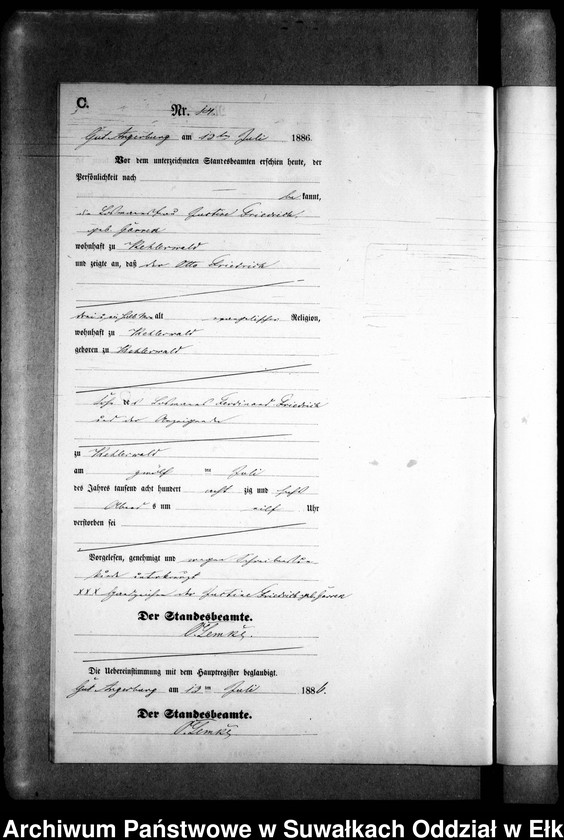 C.
Nr. 14
Gut Angerburg am 13ten Juli 1886.
Vor dem unterzeichneten Standesbeamten erschien heute, der
Persönlichkeit nach
bekannt,
die Losmannsfrau Justine Friedrich
geb.
wohnhaft zu Kehlerwald
und zeigte an, daß der Otto Friedrich
alt evangelischer Religion,
wohnhaft zu Kehlerwald
geboren zu Kehlerwald
Sohn des Losmanns Ferdinand Friedrich
und der Anzeigenden
zu Kehlerwald
am zwölf ten Juli
des Jahres tausend acht hundert acht zig und sechs
Abends um elf Uhr
verstorben sei
Vorgelesen, genehmigt und wegen
unterkreuzt
XXX Handzeichen der Justine Friedrich geb.
Der Standesbeamte.
Die Uebereinstimmung mit dem Hauptregister beglaubigt.
Gut Angerburg am 13ten Juli 1886.
Der Standesbeamte.
Archiwum Państwowe w Suwałkach Oddział w Ełk